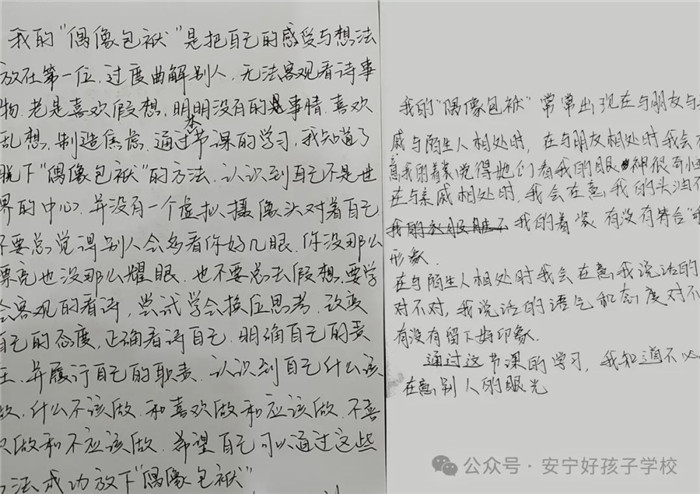 我的“偶像包袱”是把自己的感受与想法
放在第一位,过度曲解别人,无法客观看待事
物,老是喜欢假想,明明没有的事情,喜欢
乱想,制造焦虑,通过本节课的学习,我知道了
脱下“偶像包袱”的方法,认识到自己不是世
界的中心,并没有一个虚拟摄像头对着自己
不要总觉得别人会多看你好几眼,你没那么
漂亮也没那么耀眼,也不要总去假想,要学
会客观的看待,尝试学会换位思考,改变
自己的态度,正确看待自己,明确自己的责
任,并履行自己的职责,认识到自己什么该
做,什么不该做,和喜欢做和应该做,不喜
欢做和不应该做,希望自己可以通过这些
方法成功放下“偶像包袱”
我的“偶像包袱”常常出现在与朋友与
戚与陌生人相处时,在与朋友相处时我会
意我的着装觉得她们看我的眼神很
在与亲戚相处时,我会在意我的头油不
我的着装有没有符合
形象.
在与陌生人相处时我会在意我说话的
对不对,我说话的语气和态度对不
有没有留下好印象.
通过这节课的学习,我知道不必
在意别人的眼光
公众号·安宁好孩子学校